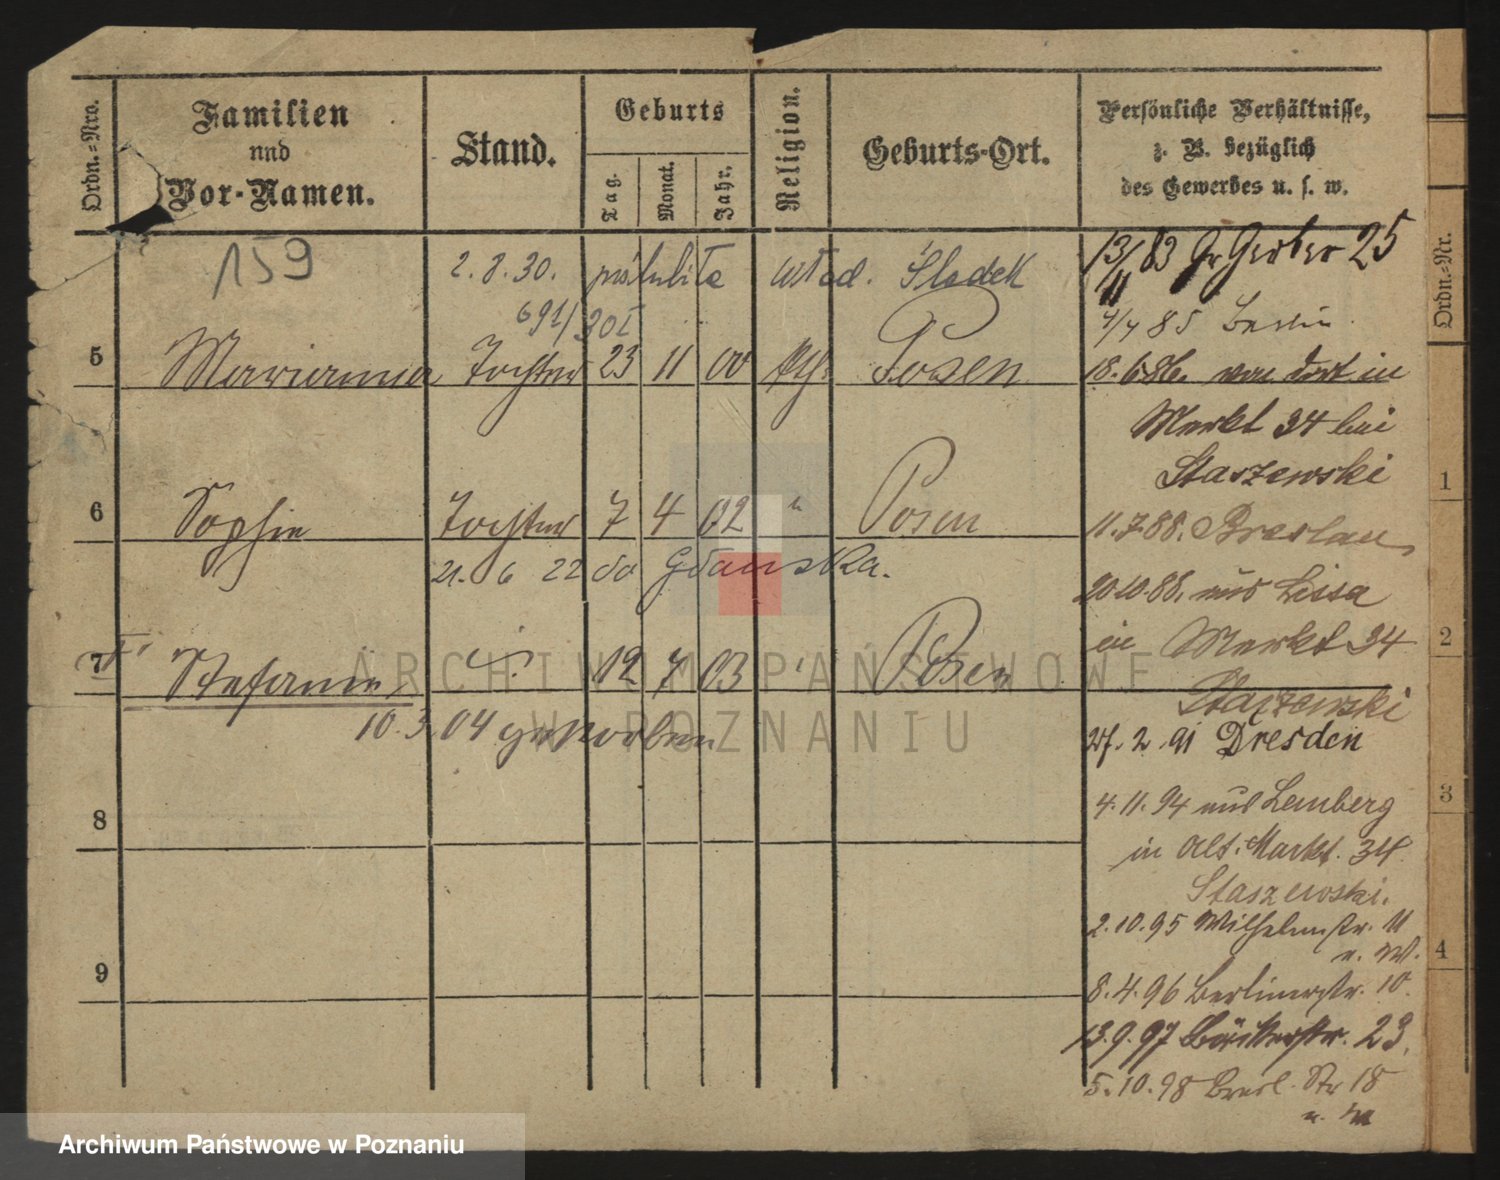 Ordn.=Nro.
Familien
und
Vor-Namen.
Stand.
Geburts
Tag.
Monat.
Jahr.
Religion.
Geburts-Ort.
Persönliche Verhältnisse,
z. B. bezüglich
des Gewerbes u. s. w.
159
2.8.30. wład. Śladek
691/30I
5 Marianna Tochter 23 11 00 kth. Posen
6 Sophie Tochter 7 4 02 " Posen
21. 6 22 do Gdańska.
7 Stefanie 12 7 03 " Posen
10.3.04 gestorben
8
9
13/11 83 Gr Gerber 25
4/7 85 Berlin
18.6.86. von dort in
Markt 34 bei
Staszewski
11.7.88. Breslau
20.10.88. aus Lissa
in Markt 34
Staszewski
27.2.91 Dresden
4.11.94 aus Lemberg
in Alt. Markt. 34.
Staszewski.
2.10.95 Wilhelmstr. 11
u. W.
8.4.96 Berlinerstr. 10.
13.9.97 Bäckerstr. 23.
5.10.98 Bresl. Str 18
Ordn.=Nr.
1
2
3
4
ARCHIWUM PAŃSTWOWE
W POZNANIU
Archiwum Państwowe w Poznaniu